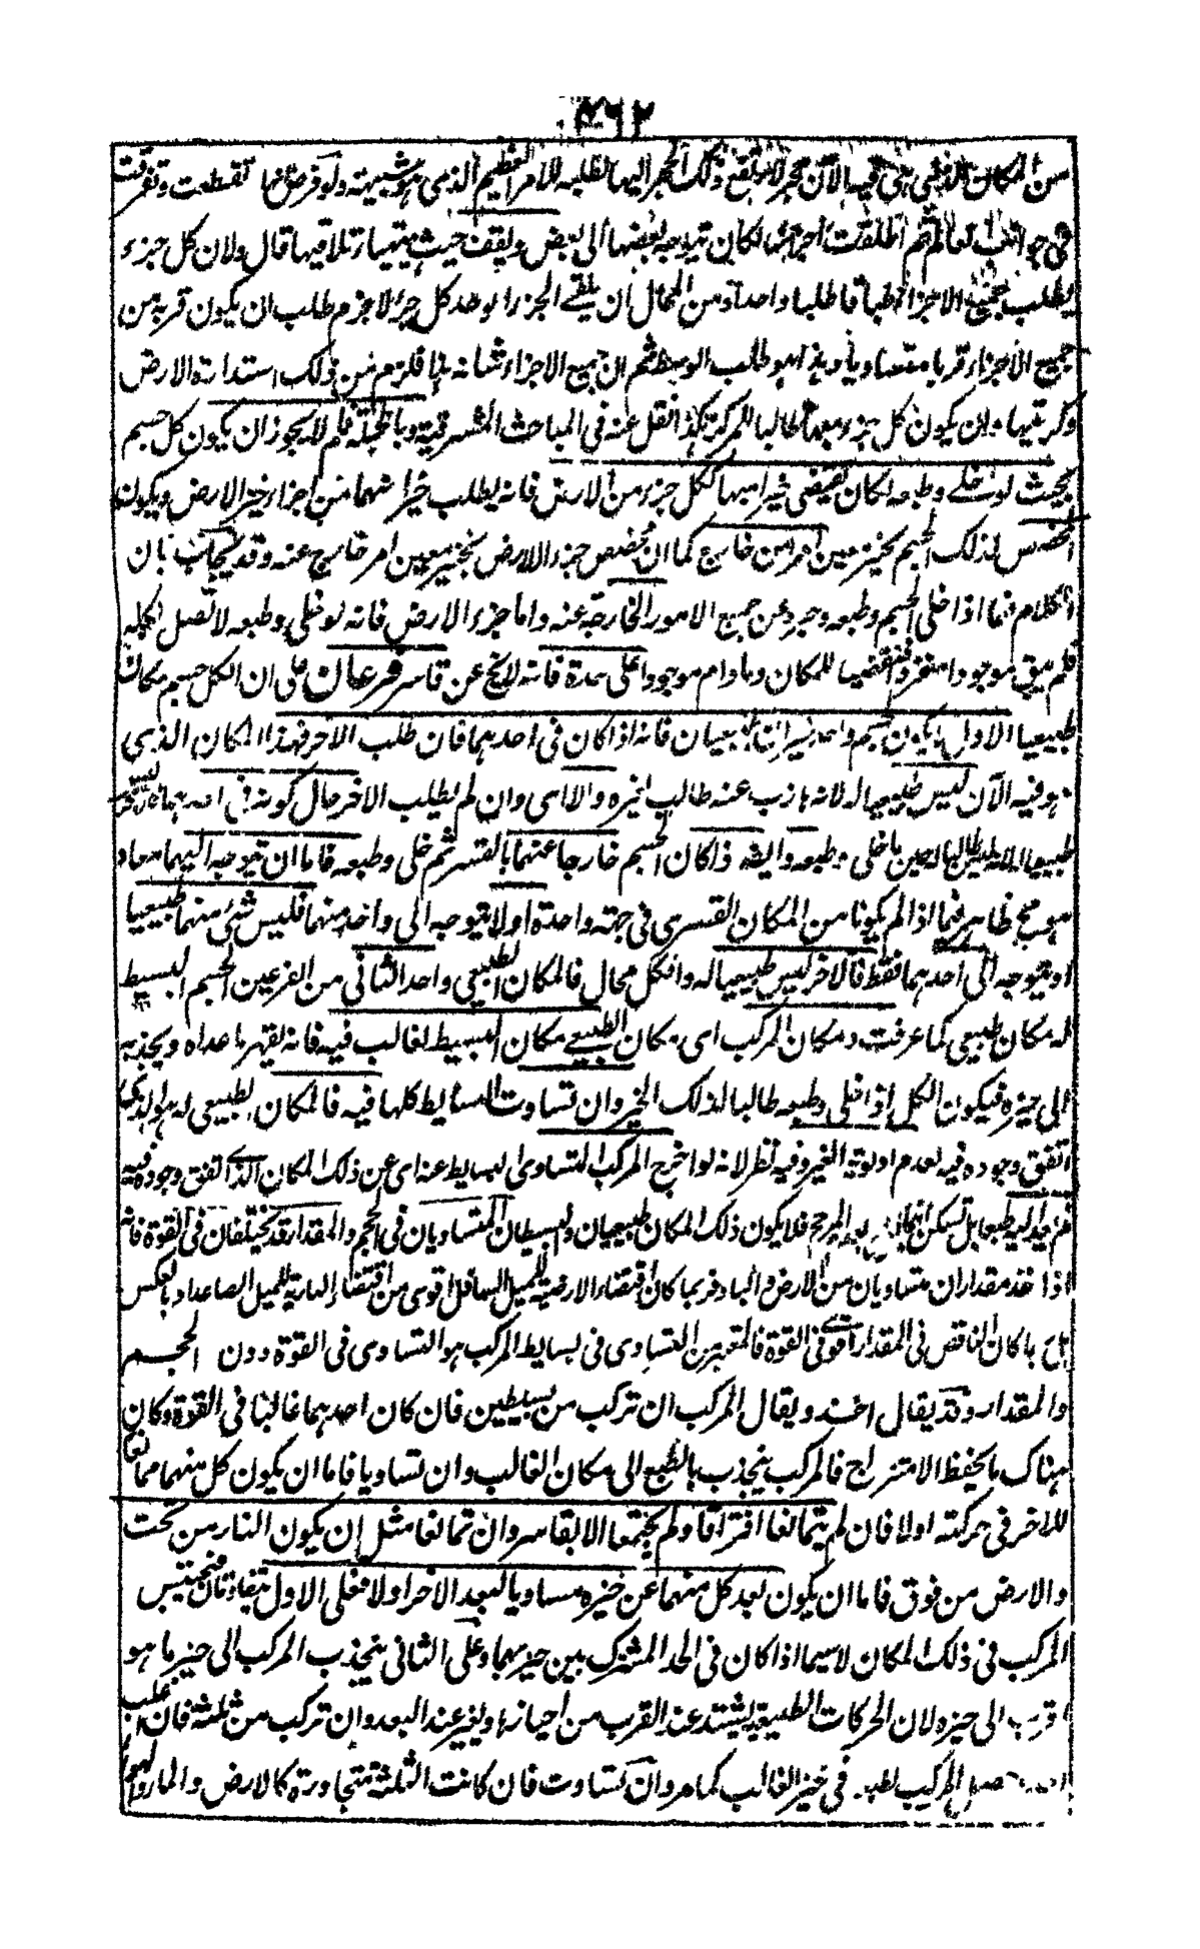 ٤٦٢
من المكان الذي هي فيه الآن حجر لارتفع ذلك الحجر اليها لطلبه للامر العظيم الذى هو شبيهته ولو فرض انها تقطعت وتفرقت
فى جوانب العالم ثم اطلقت اجزائها لكان يتوجه بعضها الى بعض ويقف حيث يتهيأ تلاقيها قال ولان كل جزء
يطلب جميع الاجزاء طلبا واحدا ومن المحال ان يلقى الجزء الواحد كل جزء لا جرم طلب ان يكون قربه من
جميع الاجزاء قربا متساويا وهذا هو طلب الوسط ثم ان جميع الاجزاء شانه هذا فلزم من ذلك استدارة الارض
وكريتها وان يكون كل جزء منها طالبا للمركز هكذا نقل عنه فى المباحث المشرقية وبالجملة فلم لا يجوز ان يكون كل جسم
بحيث لو خلى وطبعه لكان يقتضى حيزا مبهما ككل جزء من الارض فانه يطلب حيزا مبهما من اجزاء حيز الارض ويكون
المخصص لذلك الجسم بحيز معين امر من خارج كما ان مخصص جزء الارض بحيز معين امر خارج عنه وقد يجاب بان
الكلام فيما اذا خلى الجسم وطبعه وجرد عن جميع الامور الخارجة عنه واما جزء الارض فانه لو خلى وطبعه لاتصل بكله
فلم يبق موجودا منفردا مقتضيا للمكان وما دام موجودا على حدة فانه لا يخ عن قاسر فرعان على ان الكل جسم مكانا
طبيعيا الاول لا يكون لجسم واحد حيزان طبيعيان فانه اذا كان فى احدهما فان طلب الاخر فهذا المكان الذى
هو فيه الآن ليس طبيعيا له لانه هارب عنه طالب لغيره والا اى وان لم يطلب الاخر حال كونه فى احدهما فالاخر ليس
طبيعيا له لانه ليس طالبا له حين ما خلى وطبعه وايضا اذا كان الجسم خارجا عنهما بالقسر ثم خلى وطبعه فاما ان يتوجه اليهما معا و
هو مح ظاهر فيما اذا لم يكونا من المكان القسرى فى جهة واحدة او لا يتوجه الى واحد منهما فليس شئ منهما طبيعيا
او يتوجه الى احدهما فقط فالاخر ليس طبيعيا له والكل محال فالمكان الطبيعى واحد الثانى من الفرعين الجسم البسيط
له مكان طبيعى كما عرفت ومكان المركب اى مكان الطبيعى مكان البسيط الغالب فيه فانه يقهر ما عداه ويجذبه
الى حيزه فيكون الكل اذا خلى وطبعه طالبا لذلك الحيز وان تساوت البسائط كلها فيه فالمكان الطبيعى له هو الذى
اتفق وجوده فيه لعدم اولوية الغير وفيه نظر لانه لو اخرج المركب المتساوى البسايط عنه اى عن ذلك المكان الذى اتفق وجوده فيه
لم يعد اليه طبعا بل يسكن اينما المرجح فلا يكون ذلك المكان طبيعيان والبسيطان المتساويان فى الحجم والمقدار قد يختلفان فى القوة فانه
اذا اخذ مقداران متساويان من الارض والماء فربما كان اقتضاء الارضية للميل السافل اقوى من اقتضاء المائية للميل الصاعد او بالعكس
بل ربما كان الناقص فى المقدار اقوى فى القوة فالمعتبر من التساوى فى بسايط المركب هو التساوى فى القوة دون الحجم
والمقدار وقد يقال اخذ ويقال المركب ان تركب من بسيطين فان كان احدهما غالبا فى القوة وكان
هناك ما يحفظ الامتزاج فالمركب ينجذب بالطبع الى مكان الغالب وان تساويا فاما ان يكون كل منهما ممانعا
للاخر فى حركته اولا فان لم يتمانعا افترقا ولم يجتمعا الا بقاسر وان تمانعا مثل ان يكون النار من تحت
والارض من فوق فاما ان يكون بعد كل منهما عن حيزه مساويا لبعد الاخر اولا فعلى الاول يتقاومان فيحتبس
المركب فى ذلك المكان لاسيما اذا كان فى الحد المشترك بين حيزيهما وعلى الثانى ينجذب المركب الى حيز ما هو
اقرب الى حيزه لان الحركات الطبيعية يشتد عند القرب من احيازها ويفتر عند البعد وان تركب من ثلثة فان غلب
احدها حصل المركب بطبعه فى حيز الغالب كما مر وان تساوت فان كانت الثلثة متجاورة كالارض والماء والهواء